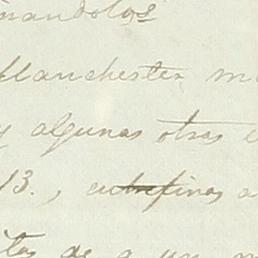 nandolos
Manchester m
y algunas otras e
13., entrefinas a
itas de a un m